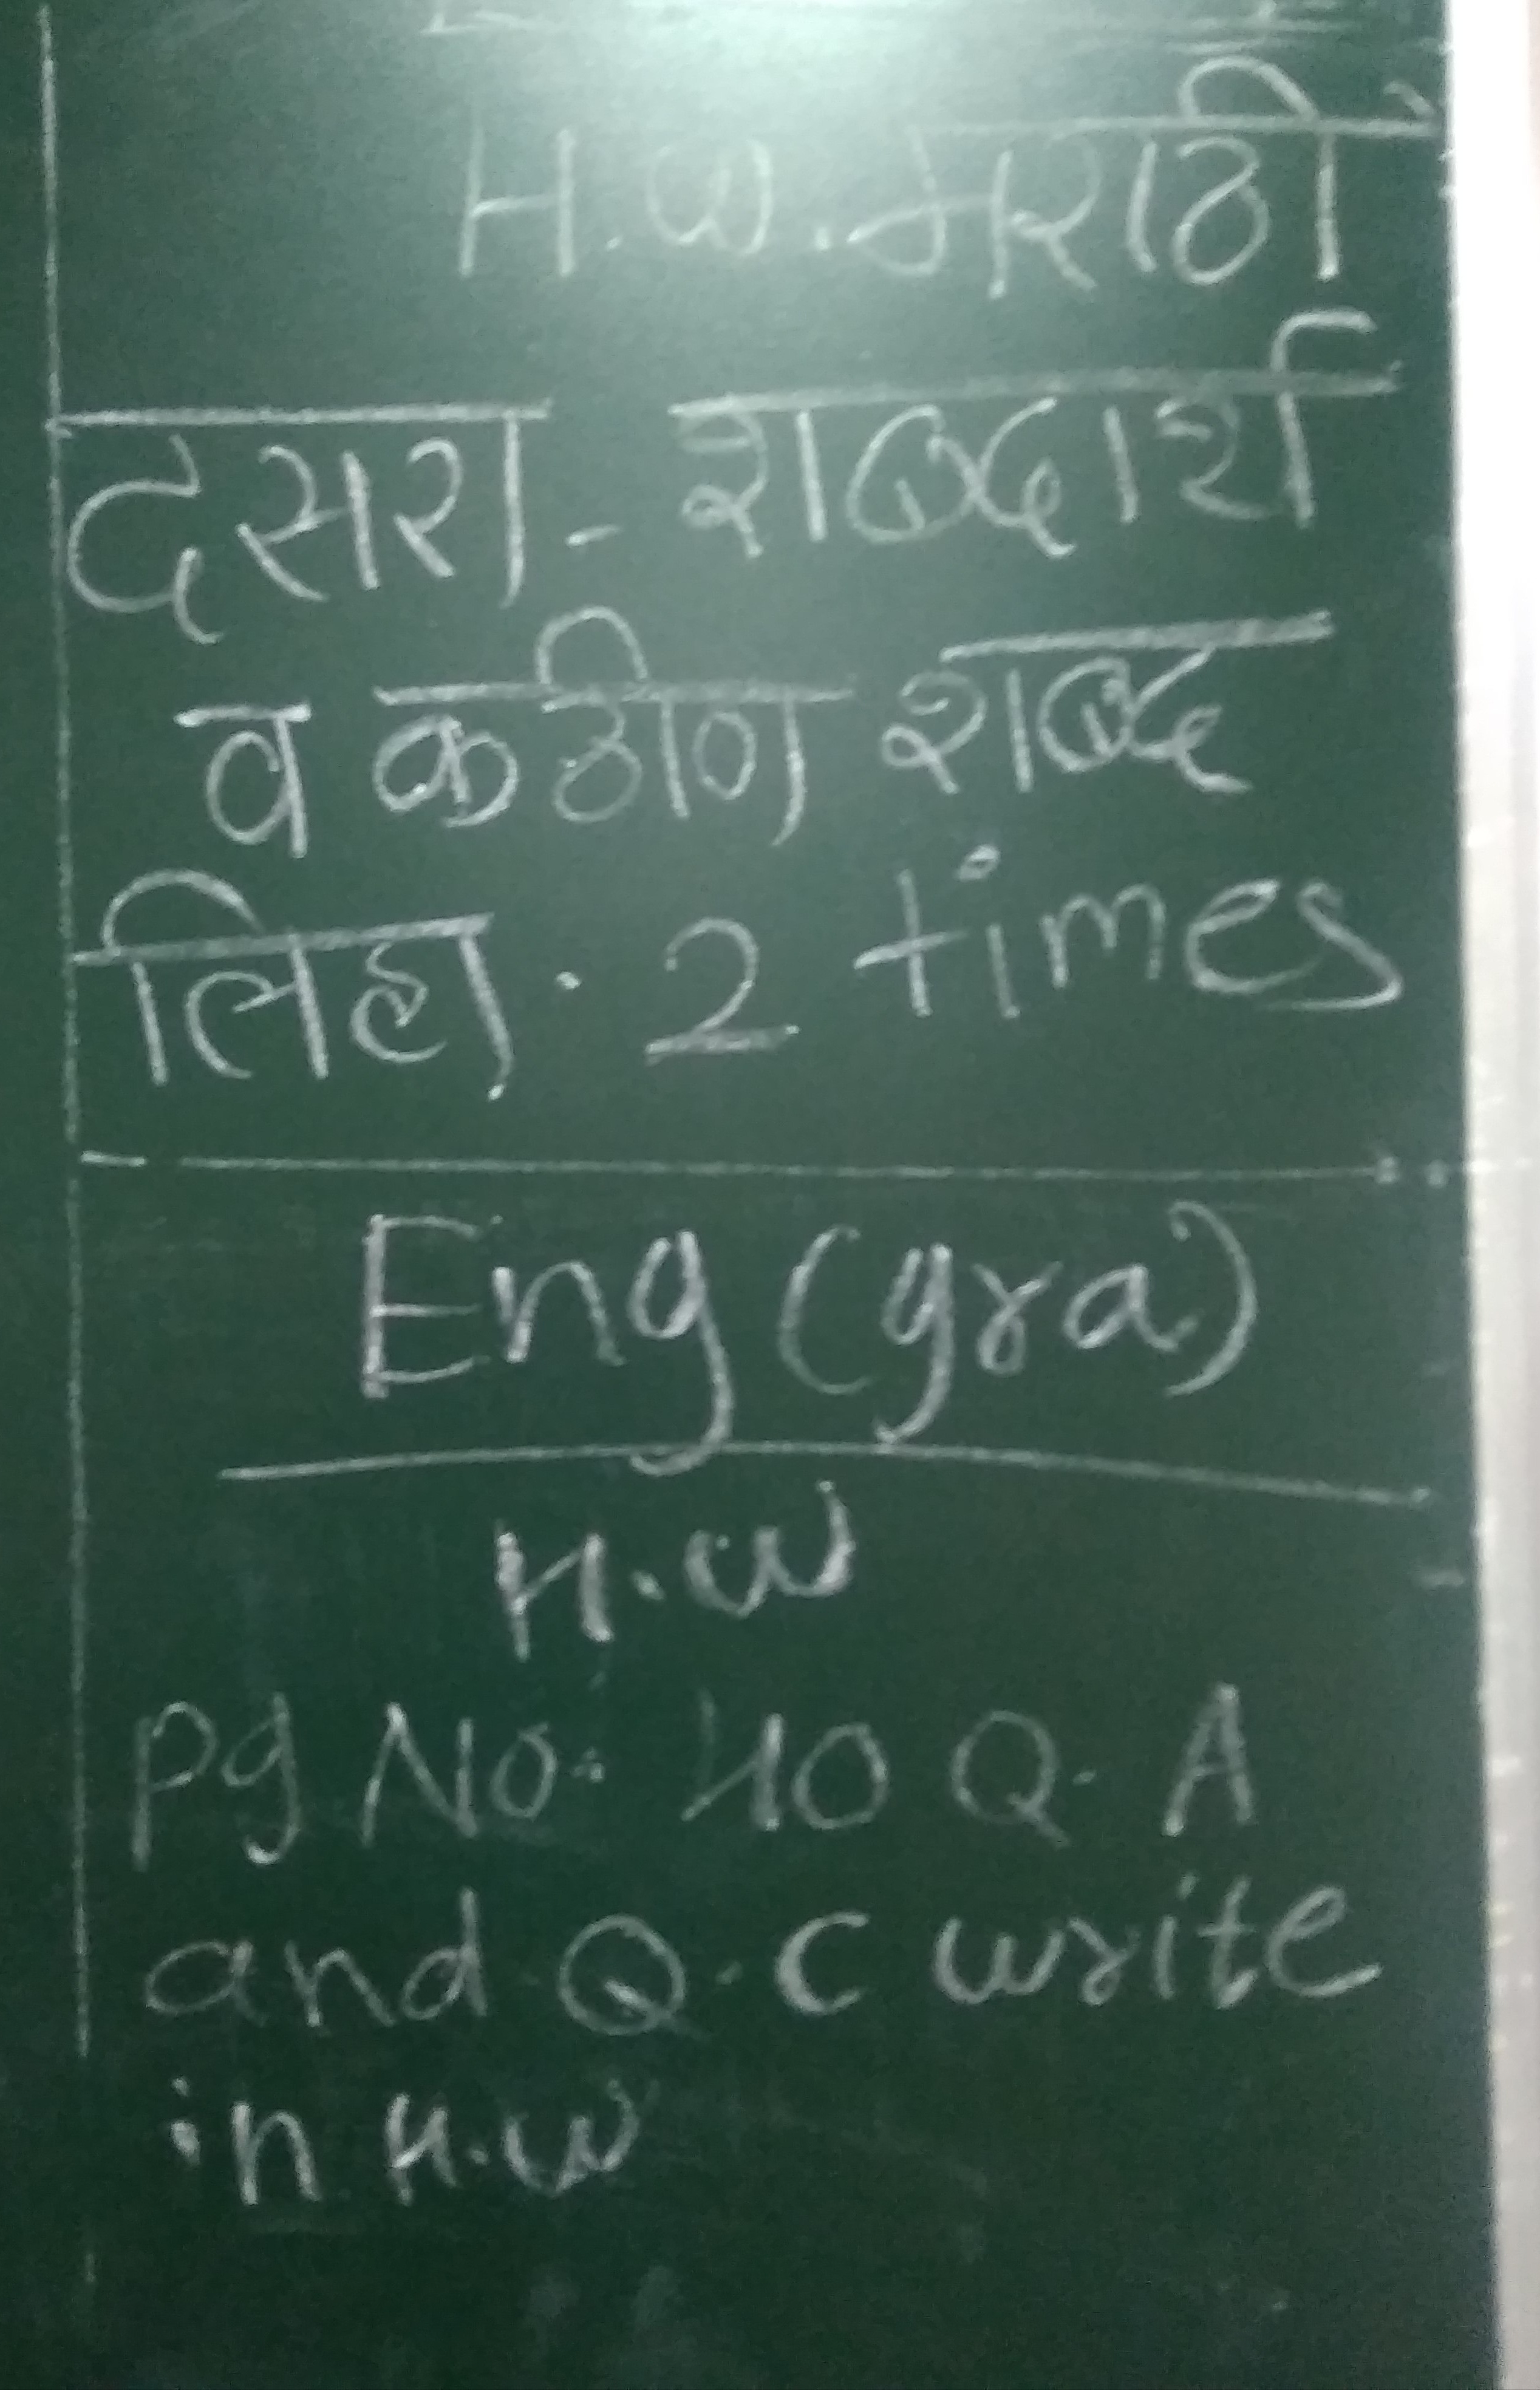 H.W. मराठी
दसरा - शब्दार्थ
व कठीण शब्द
लिहा. 2 times
Eng (gra)
H.W
Pg No. 40 Q. A
and Q. C write
in H.W